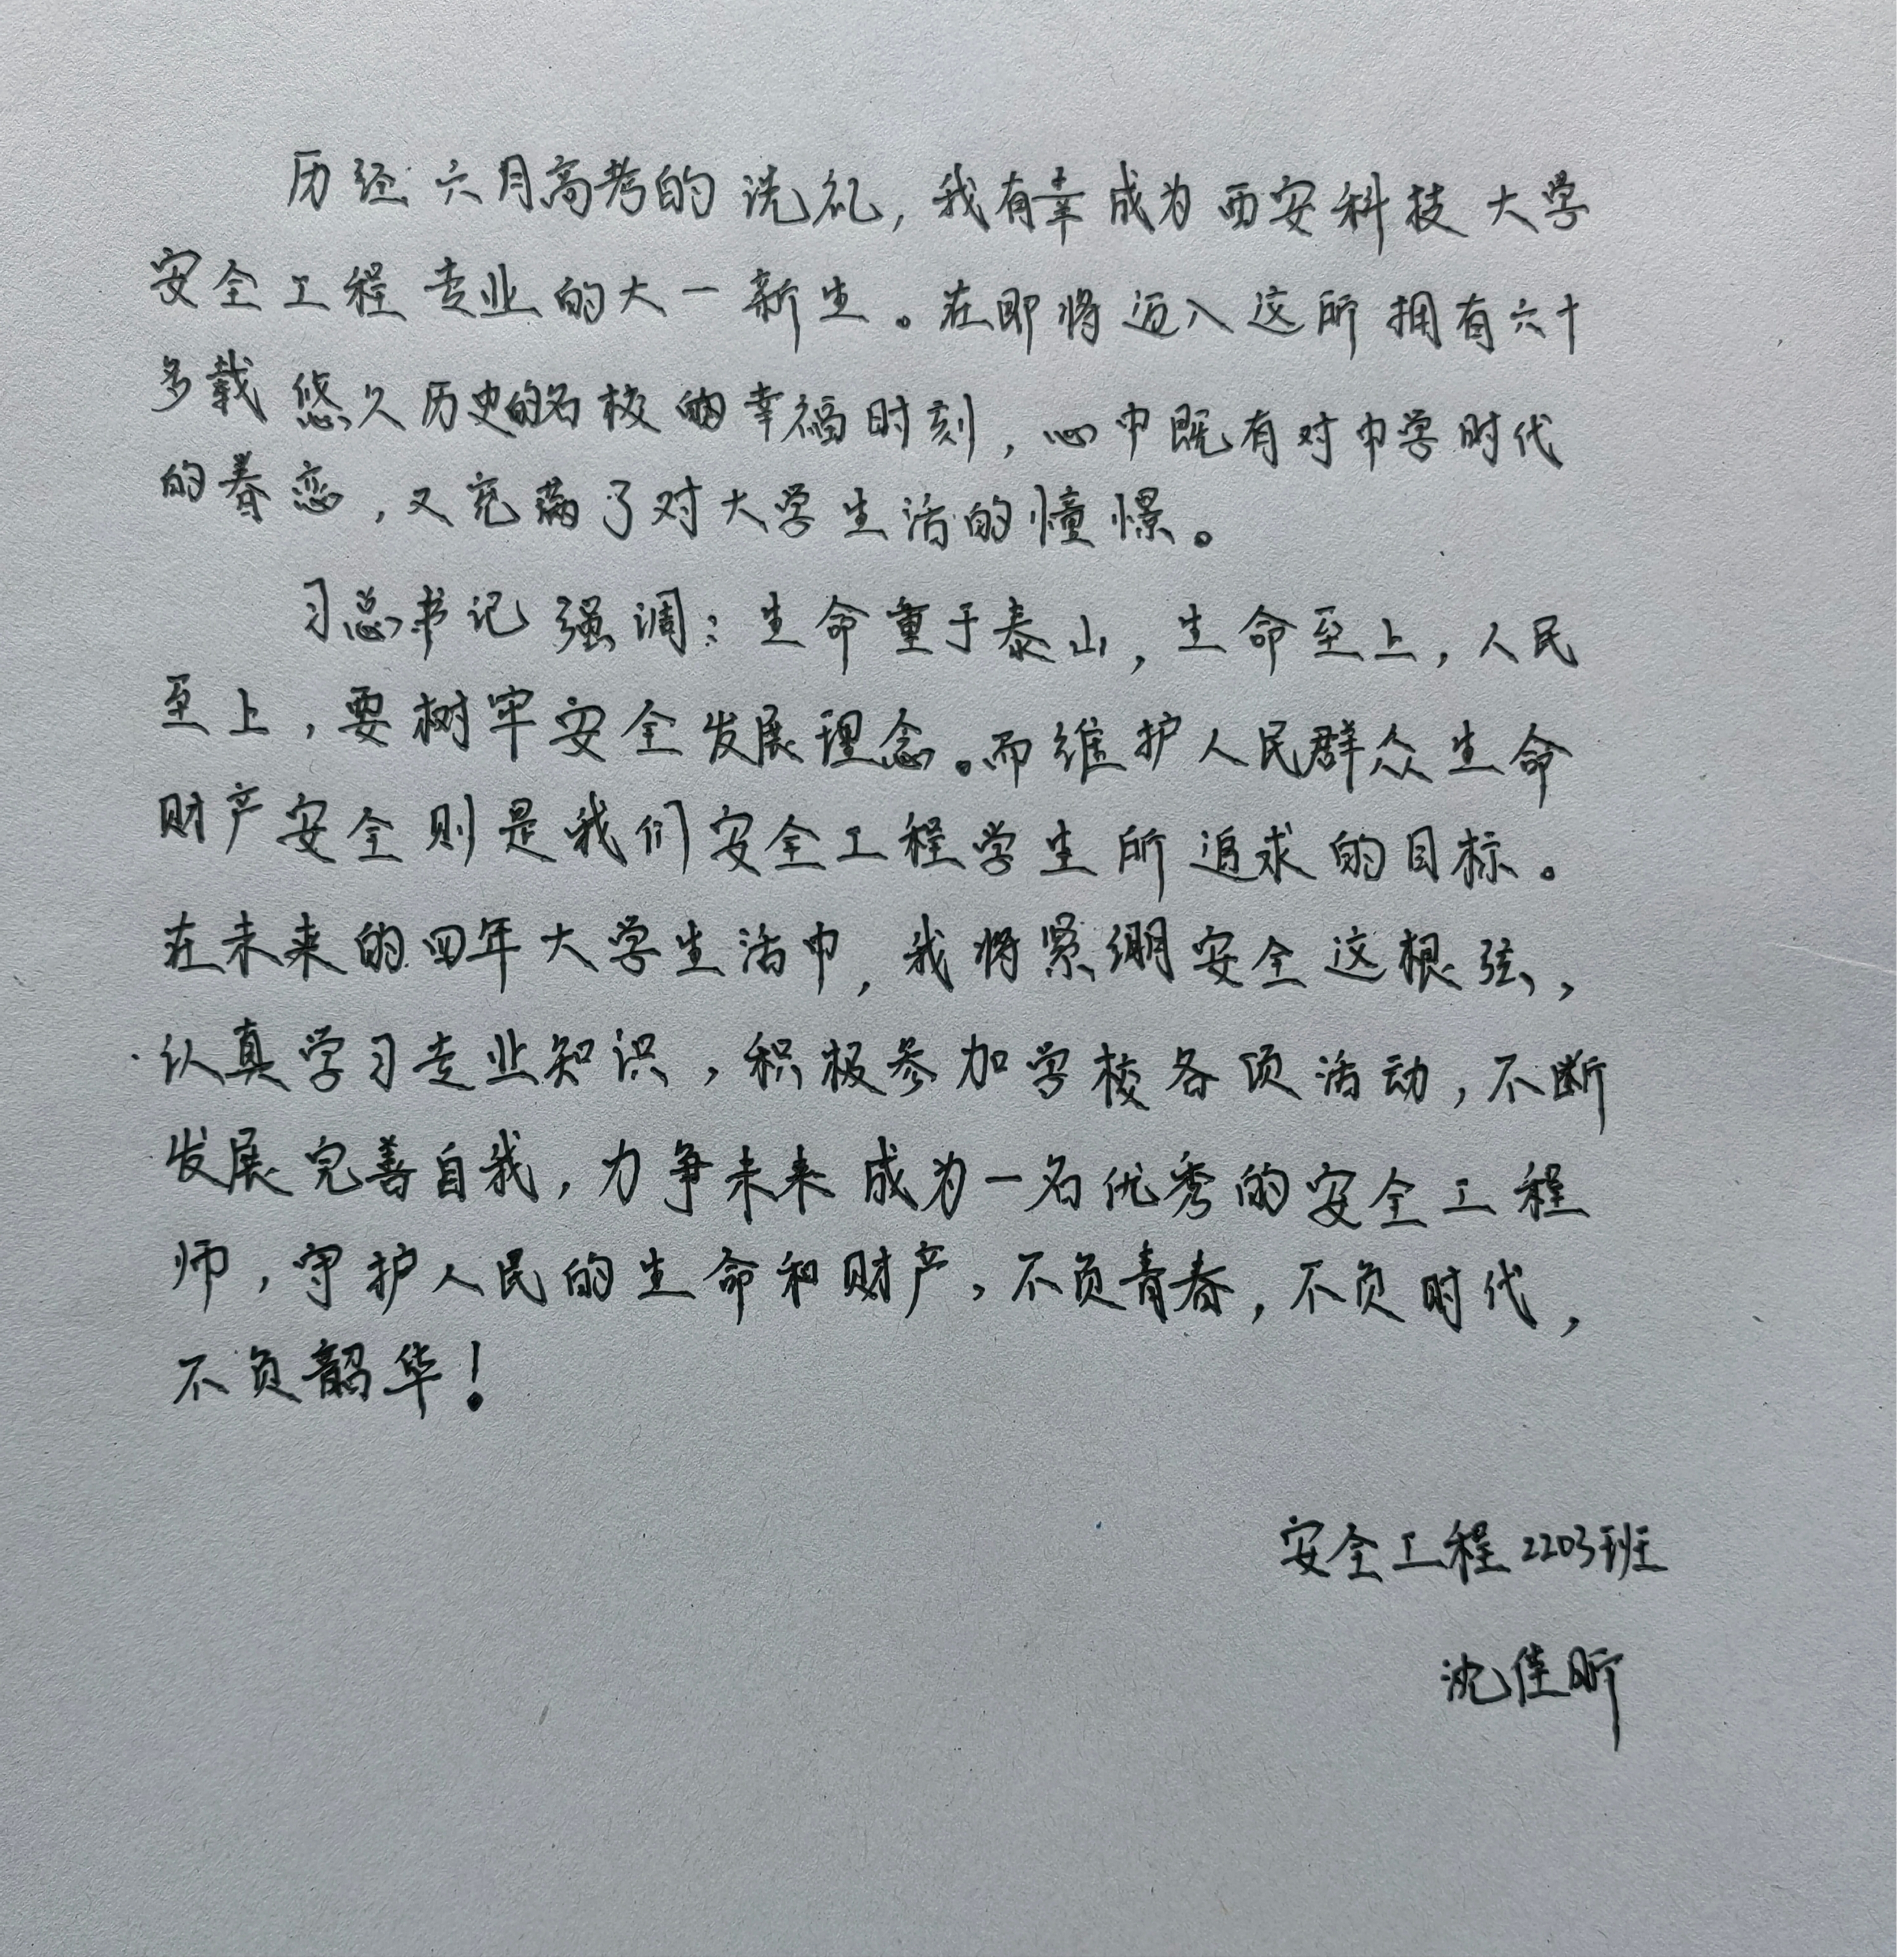 历经六月高考的洗礼，我有幸成为西安科技大学
安全工程专业的大一新生。在即将迈入这所拥有六十
多载悠久历史的名校的幸福时刻，心中既有对中学时代
的眷恋，又充满了对大学生活的憧憬。
习总书记强调：生命重于泰山，生命至上，人民
至上，要树牢安全发展理念。而维护人民群众生命
财产安全则是我们安全工程学生所追求的目标。
在未来的四年大学生活中，我将紧绷安全这根弦，
认真学习专业知识，积极参加学校各项活动，不断
发展完善自我，力争未来成为一名优秀的安全工程
师，守护人民的生命和财产，不负青春，不负时代，
不负韶华！
安全工程2203班
沈佳昕